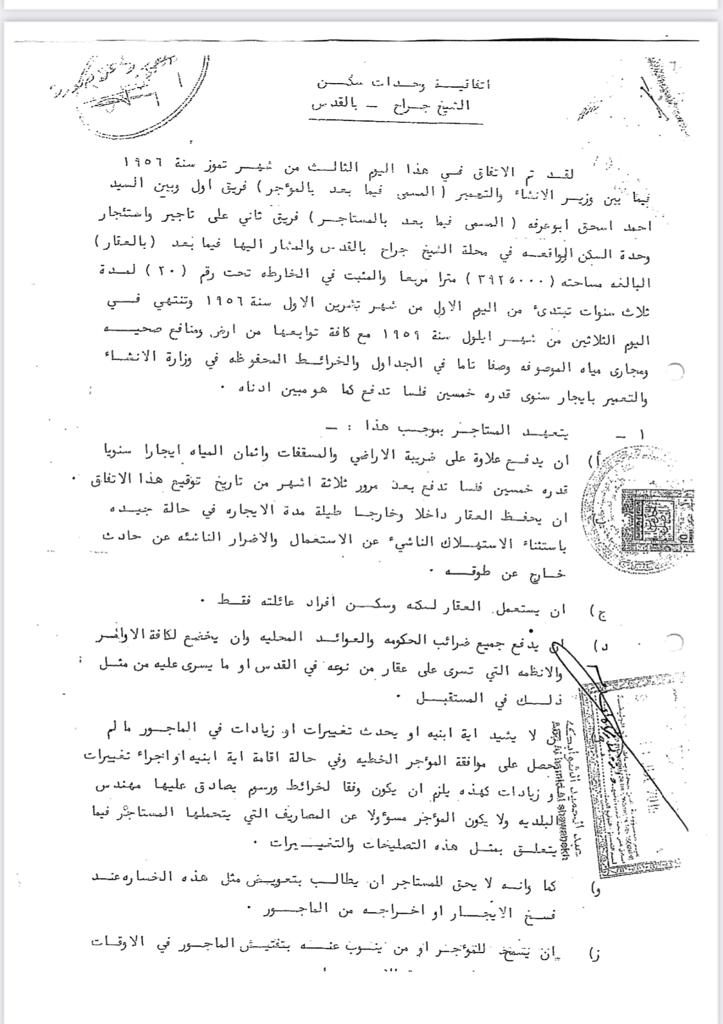 اتفاقية وحدات سكن
الشيخ جراح - بالقدس
لقد تم الاتفاق في هذا اليوم الثالث من شهر تموز سنة ١٩٥٦
فيما بين وزير الانشاء والتعمير ( المسمى فيما بعد بالمؤجر ) فريق اول وبين السيد
احمد اسحق ابوعرفه ( المسمى فيما بعد بالمستاجر ) فريق ثاني على تاجير واستئجار
وحدة السكن الواقعه في محلة الشيخ جراح بالقدس والمشار اليها فيما بعد ( بالعقار )
البالغه مساحته ( ٣٩٢٥٠٠٠ ) مترا مربعا والمثبت في الخارطه تحت رقم ( ٢٠ ) لمدة
ثلاث سنوات تبتدئ من اليوم الاول من شهر تشرين الاول سنة ١٩٥٦ وتنتهي في
اليوم الثلاثين من شهر ايلول سنة ١٩٥٩ مع كافة توابعها من ارض ومنافع صحيه
ومجارى مياه الموصوفه وصفا تاما في الجداول والخرائط المحفوظه في وزارة الانشاء
والتعمير بايجار سنوى قدره خمسين فلسا تدفع كما هو مبين ادناه .
١ - يتعهد المستاجر بموجب هذا : -
أ ) ان يدفع علاوة على ضريبة الاراضي والمسقفات واثمان المياه ايجارا سنويا
قدره خمسين فلسا تدفع بعد مرور ثلاثة اشهر من تاريخ توقيع هذا الاتفاق .
ان يحفظ العقار داخلا وخارجا طيلة مدة الايجاره في حالة جيده
باستثناء الاستهلاك الناشيء عن الاستعمال والاضرار الناشئه عن حادث
خارج عن طوقه .
ج ) ان يستعمل العقار لسكنه وسكن افراد عائلته فقط .
د ) ان يدفع جميع ضرائب الحكومه والعوائد المحليه وان يخضع لكافة الاوامر
والانظمه التي تسرى على عقار من نوعه في القدس او ما يسرى عليه من مثل
ذلك في المستقبل .
لا يشيد اية ابنيه او يحدث تغييرات او زيادات في الماجور ما لم
يحصل على موافقة المؤجر الخطيه وفي حالة اقامة اية ابنيه او اجراء تغييرات
و زيادات كهذه يلزم ان يكون وفقا لخرائط ورسم يصادق عليها مهندس
البلديه ولا يكون المؤجر مسؤولا عن المصاريف التي يتحملها المستاجر فيما
يتعلق بمثل هذه التصليحات والتغييرات .
و ) كما وانه لا يحق للمستاجر ان يطالب بتعويض مثل هذه الخساره عند
فسخ الايجار او اخراجه من الماجور .
ز ) ان يسمح للمؤجر او من ينوب عنه بتفتيش الماجور في الاوقات
عبد الحميد الشوابكة